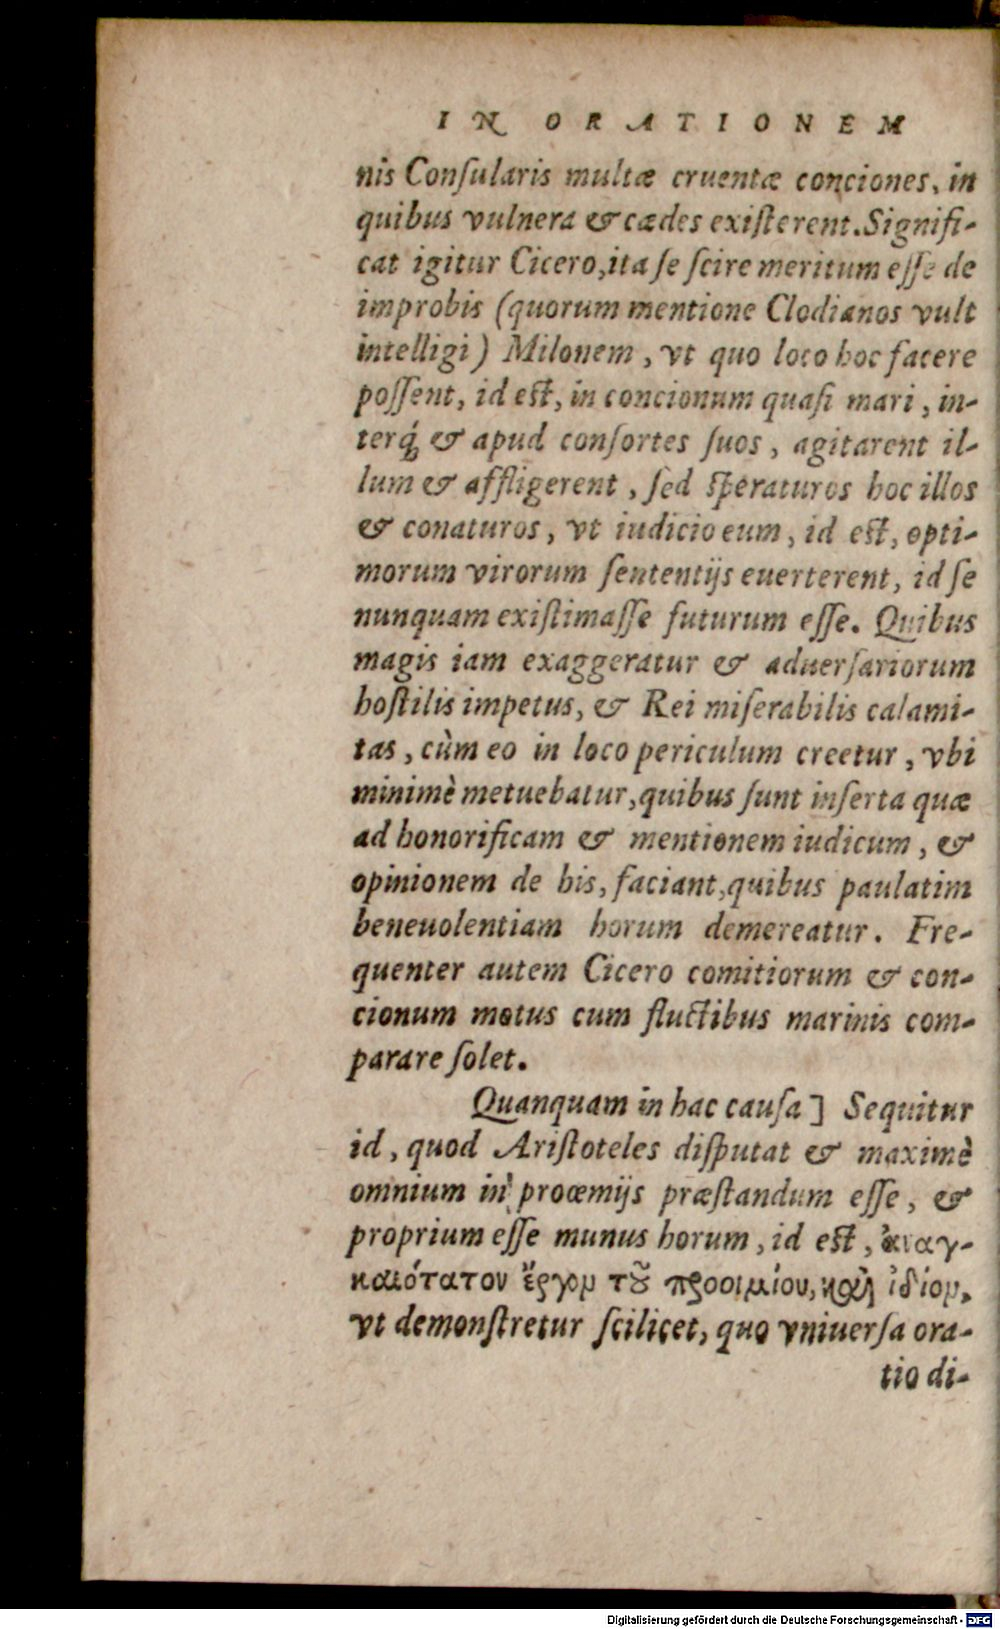 IN ORATIONEM
nis Conſularis multæ cruentæ conciones, in
quibus vulnera & cædes exiſterent. Signifi-
cat igitur Cicero, ita ſe ſcire meritum eſſe de
improbis (quorum mentione Clodianos vult
intelligi) Milonem, vt quo loco hoc facere
poſſent, id eſt, in concionum quaſi mari, in-
terq́; & apud conſortes ſuos, agitarent il-
lum & affligerent, ſed ſperaturos hoc illos
& conaturos, vt iudicio eum, id eſt, opti-
morum virorum ſententijs euerterent, id ſe
nunquam exiſtimaſſe futurum eſſe. Quibus
magis iam exaggeratur & aduerſariorum
hoſtilis impetus, & Rei miſerabilis calami-
tas, cùm eo in loco periculum creetur, vbi
minimè metuebatur, quibus ſunt inſerta quæ
ad honorificam & mentionem iudicum, &
opinionem de his, faciant, quibus paulatim
beneuolentiam horum demereatur. Fre-
quenter autem Cicero comitiorum & con-
cionum motus cum fluctibus marinis com-
parare ſolet.
Quanquam in hac cauſa] Sequitur
id, quod Ariſtoteles diſputat & maximè
omnium in proœmijs præſtandum eſſe, &
proprium eſſe munus horum, id eſt, ἀναγ-
καιότατον ἔργον τοῦ προοιμίου, καὶ ἰδίον,
vt demonſtretur ſcilicet, quo vniuerſa ora-
tio di-
Digitalisierung gefördert durch die Deutsche Forschungsgemeinschaft - DFG